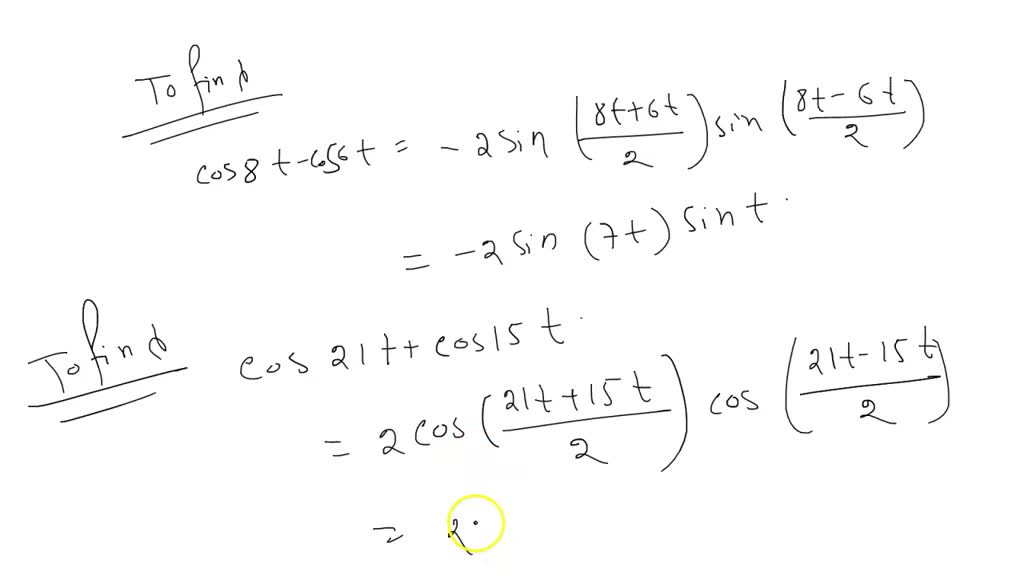 To find
cos 8t - cos6t = -2 sin ((8t+6t)/2) sin ((8t-6t)/2)
= -2 sin (7t) sin t.
To find
cos 21t + cos 15 t.
= 2 cos ((21t+15t)/2) cos ((21t-15t)/2)
= 2